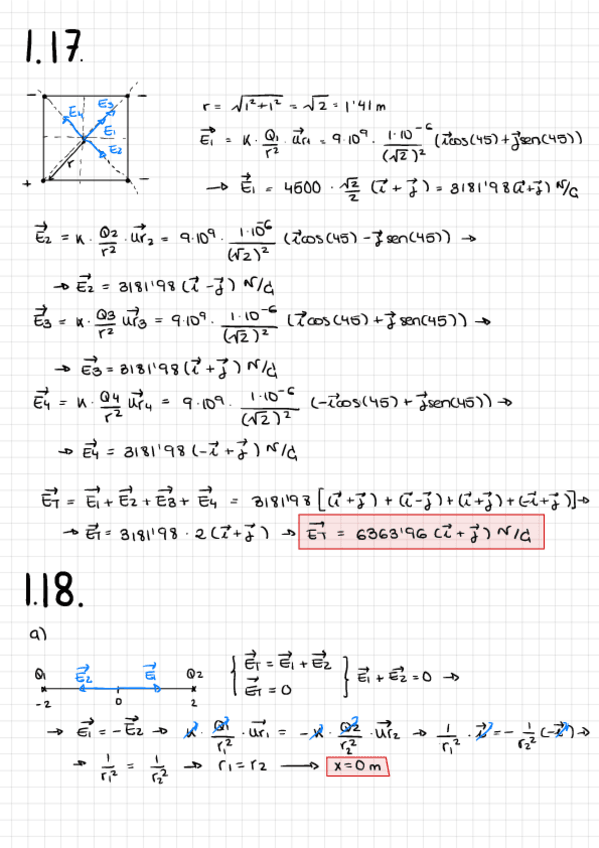 1.17.
- -
E4 E3
E1
E2
r
+ -
r = √(1² + 1²) = √2 = 1'41 m
E⃗1 = K · Q1/r² · u⃗r1 = 9·10⁹ · 1·10⁻⁶/(√2)² (i⃗cos(45) + j⃗sen(45))
→ E⃗1 = 4500 · √2/2 (i⃗ + j⃗) = 3181'98(i⃗+j⃗) N/C
E⃗2 = K · Q2/r² · u⃗r2 = 9·10⁹ · 1·10⁻⁶/(√2)² (i⃗cos(45) - j⃗sen(45)) →
→ E⃗2 = 3181'98 (i⃗-j⃗) N/C
E⃗3 = K · Q3/r² u⃗r3 = 9·10⁹ · 1·10⁻⁶/(√2)² (i⃗cos(45) + j⃗sen(45)) →
→ E⃗3 = 3181'98 (i⃗+j⃗) N/C
E⃗4 = K · Q4/r² u⃗r4 = 9·10⁹ · 1·10⁻⁶/(√2)² (-i⃗cos(45) + j⃗sen(45)) →
→ E⃗4 = 3181'98 (-i⃗+j⃗) N/C
E⃗T = E⃗1 + E⃗2 + E⃗3 + E⃗4 = 3181'98 [(i⃗+j⃗) + (i⃗-j⃗) + (i⃗+j⃗) + (-i⃗+j⃗)] →
→ E⃗T = 3181'98 · 2(i⃗+j⃗) → E⃗T = 6363'96 (i⃗+j⃗) N/C
1.18.
a)
Q1 E⃗2 E⃗1 Q2
-2 0 2
{ E⃗T = E⃗1 + E⃗2
E⃗T = 0 } E⃗1 + E⃗2 = 0 →
→ E⃗1 = -E⃗2 → K · Q1/r1² · u⃗r1 = -K · Q2/r2² · u⃗r2 → 1/r1² · i⃗ = - 1/r2² (-i⃗) →
→ 1/r1² = 1/r2² → r1 = r2 → x = 0 m